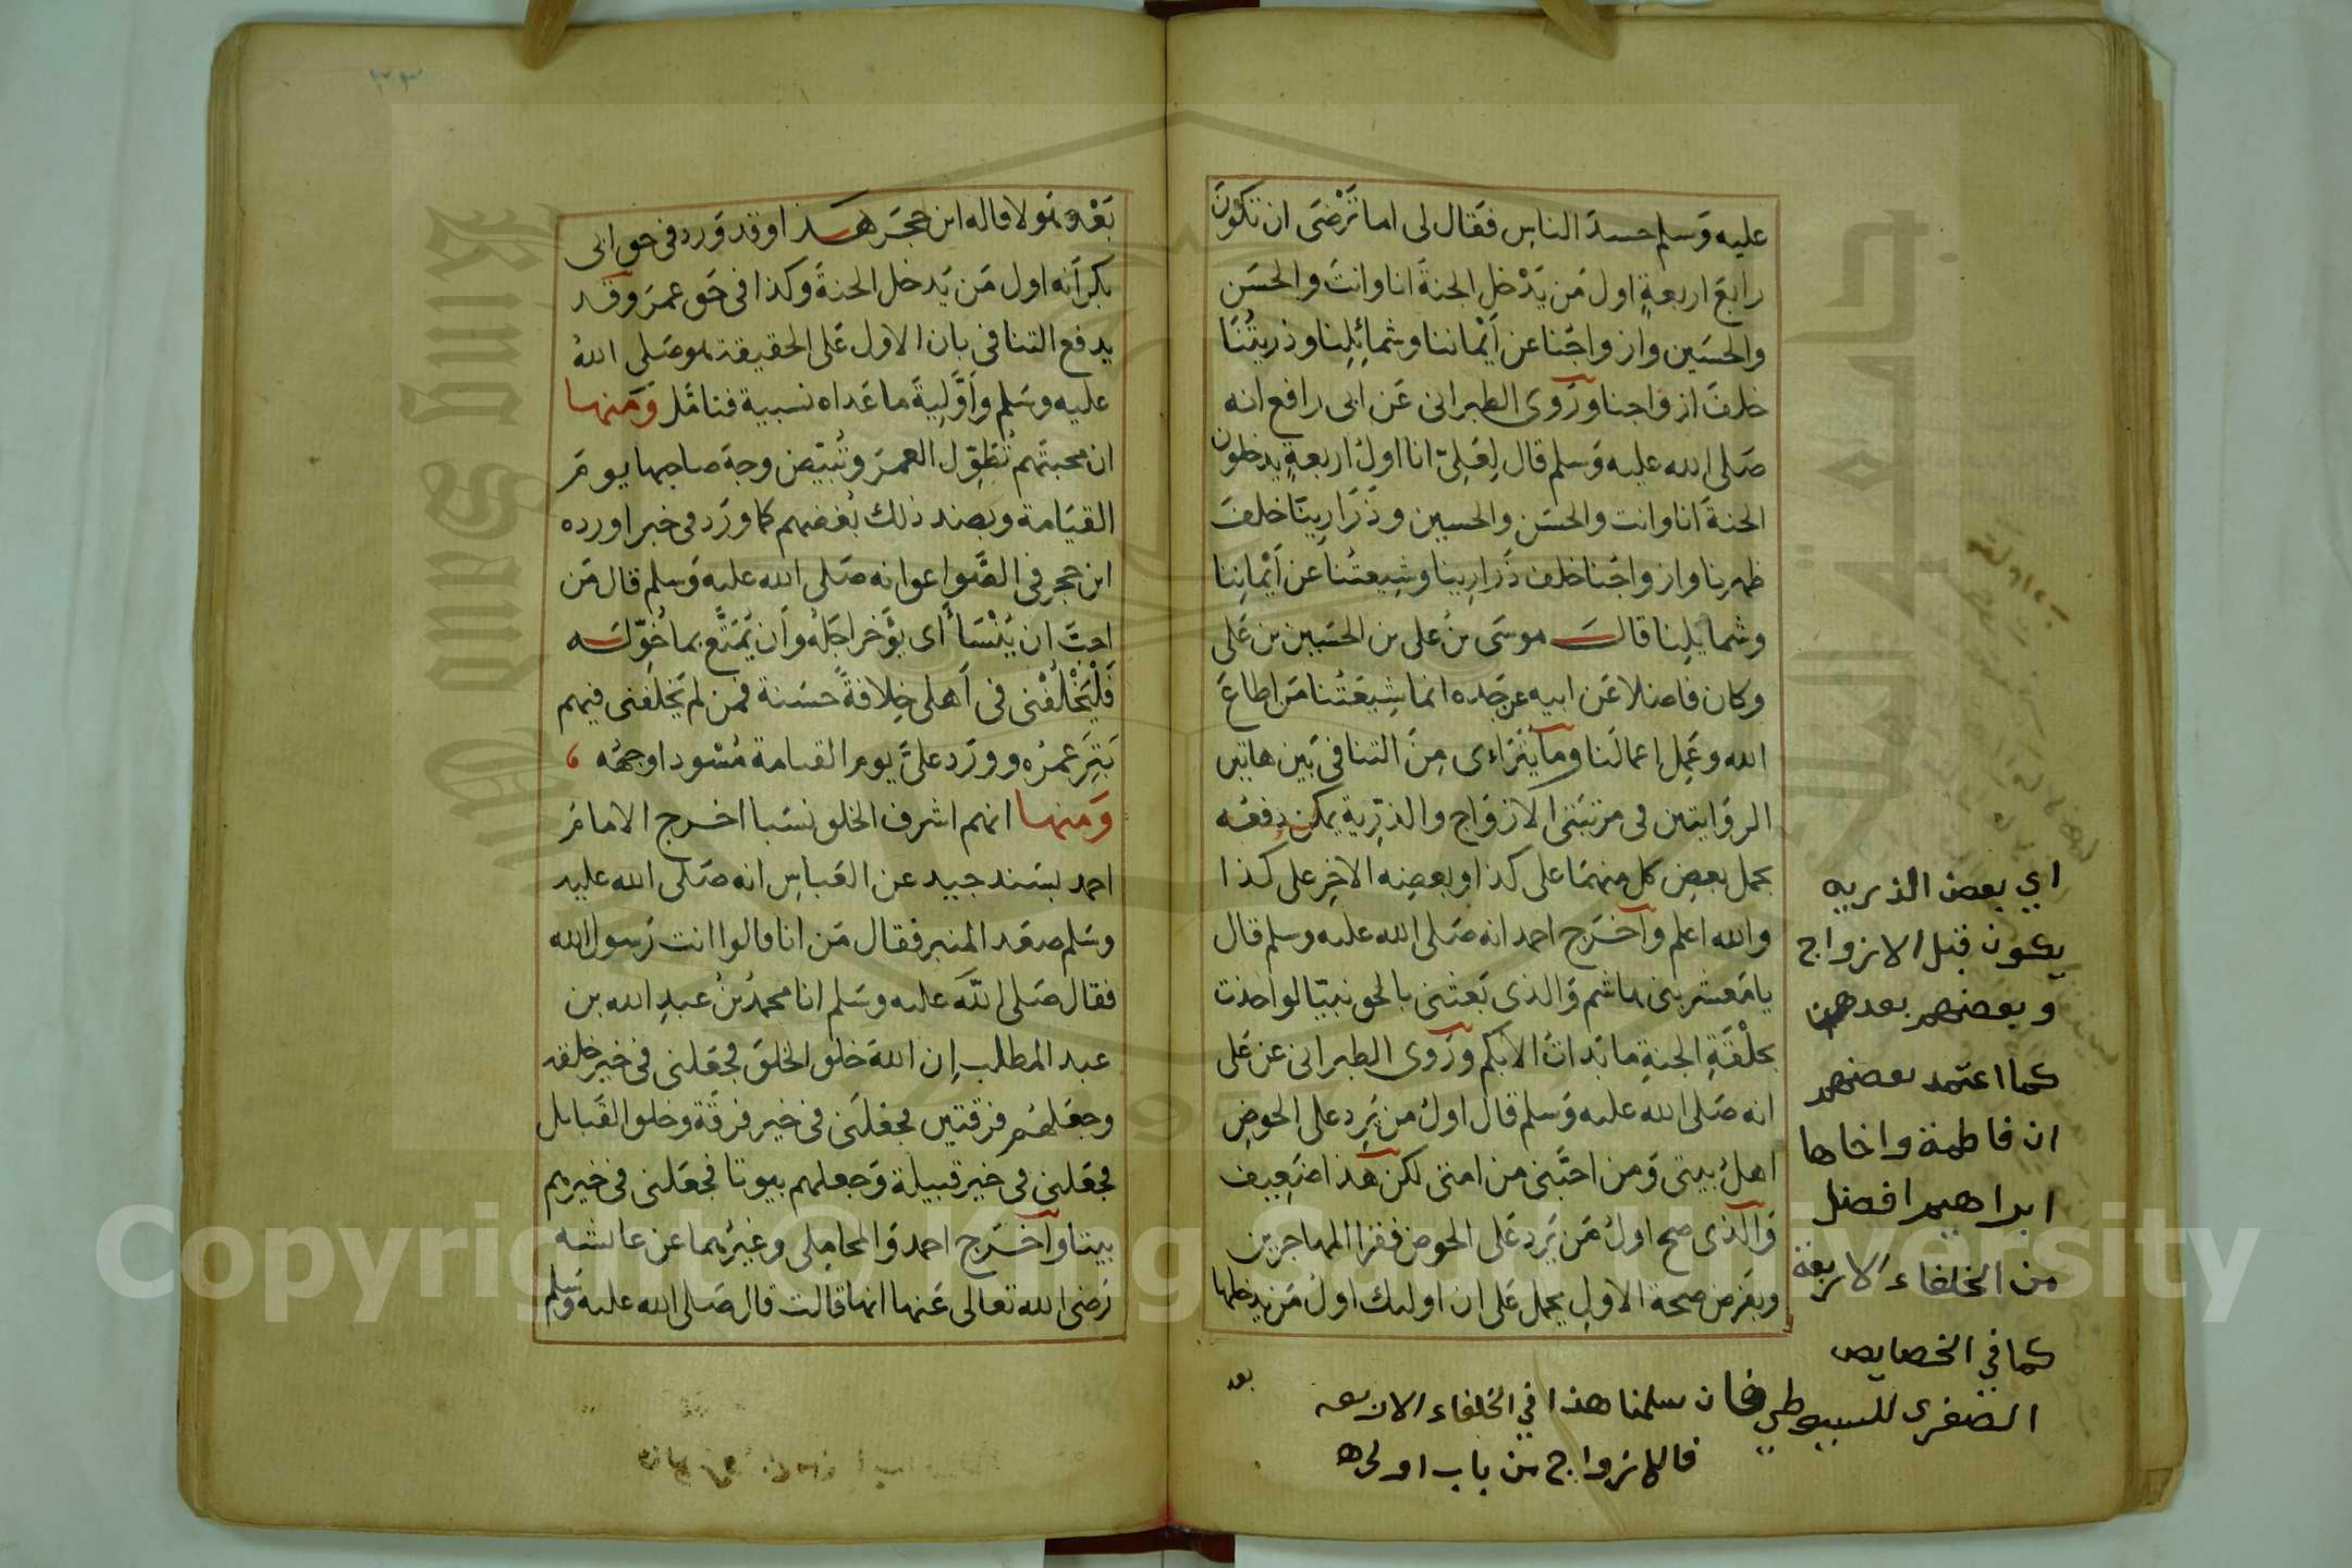 عليه وَسلم حسدَ الناسِ فقال لى اما تَرْضَى ان تكونَ
رابعَ اربعةٍ اول مَن يَدْخل الجنةَ انا وانتَ والحسَن
والحسَين وازواجُنا عن أيْماننا وشمائِلِنا وذريتُنَا
خلفَ ازواجنا ورَوى الطبرانى عَن ابى رافع انه
صَلى الله عليه وَسلم قال لِعَلِىّ انا اولُ اربعةٍ يدخلون
الجنةَ انا وانت والحسَن والحسين وذَرَارِينَا خلفَ
ظهرنا وازواجُنا خلف ذَرَارِينا وشِيعتُنا عن أيْمانِنا
وشمايِلِنا قالَ موسَى بنُ على بن الحسَين بن عَلى
وكان فاضلا عَن ابيه عن جَده انما شِيعَتُنا مَن اطاعَ
الله وعَمِل اعمالَنا وما يَتَراءى مِنَ التنافى بَين هاتين
الروَايتين فى مرتبَتى الازوَاج والذرّيةِ يمكن دفعُه
بحمل بعضِ كل منهمَا على كذا وبعضِه الاخِر على كذا
والله اعلم وَاخرَج احمد انه صَلى الله عليه وسلم قال
يا مَعشر بنى هاشم وَالذى بَعثنى بالحق نبيّا لو اخذت
بحلْقَةِ الجنةِ ما بَداتُ الا بكم ورَوى الطبرانى عن عَلى
انه صَلى الله عليه وَسلم قال اولُ من يَرِد على الحوضِ
اهلُ بيتى وَمن احبَّنى من امتى لكن هَذا ضَعِيف
وَالذى صح اولُ مَن يَرِد عَلى الحوض فقرا المهاجرين
وبفَرض صحة الاول يحمل عَلى ان اوليك اولُ مَن يدخلها
اي بعض الذريه
يكون قبل الازواج
وبعضهم بعدهن
كما اعتمد بعضهم
ان فاطمة واخاها
ابراهيم افضل
من الخلفاء الاربعة
كما في الخصايص
الصغرى للسيوطي فان سلمنا هذا في الخلفاء الاربعه
فالازواج من باب اولى
بعد
بَعْد وَلا قاله ابن حجَر هَكَذا وقد وَرد فى حق ابى
بكر أنه اول مَن يَدخل الجنةَ وكذا فى حَق عمرَ وقَد
يدفع التنافى بان الاول عَلى الحقيقة هو صَلى اللهُ
عليه وسَلم وَأوَّلِيةَ ما عَداه نسبية فتامَّل وَمَنها
ان محبتَهم تُطَوِّل العمرَ وتُبَيّض وجهَ صاحبها يومَ
القيَامة وبضد ذلك بُغضهم كما ورَد فى خبر اورده
ابن حجر فى الصَّواعق انه صَلى الله عليه وَسلم قال مَن
احبَّ ان يُنْسَأ أى يؤَخر اجَلُه وأن يُمَتَّع بما خُوّلَه
فَلْيَخْلُفْنى فى أهلى خِلافةً حسَنة فمن لم يَخلُفنى فيهم
بُتِرَ عمرُه وورَد علىَّ يوم القيامة مُسْودا وجهُه
وَمنها انهم اشرف الخلق نسَبا اخرج الامامُ
احمد بسَند جيد عن العَباسِ انه صَلى الله عليه
وسَلم صعَد المنبر فقال مَن انا قالوا انت رَسول الله
فقال صَلى اللَّه عليه وسَلم انا محمدُ بنُ عبدِ الله بن
عبد المطلب إن اللهَ خلق الخلقَ فجَعَلنى فى خير خلقه
وجعَلهُم فرقتين فجعَلنى فى خير فرقَة وخلق القَبايل
فجعَلنى فى خير قبيلة وَجعلهم بيوتا فجَعَلنى فى خيرهم
بيتا وَاخرَج احمد وَالمحامِلى وغيرُهما عن عائشه
رَضى الله تعالى عَنها انها قالت قال صَلى الله عليه وسَلم
King Saud University
Copyright © King Saud University
1957